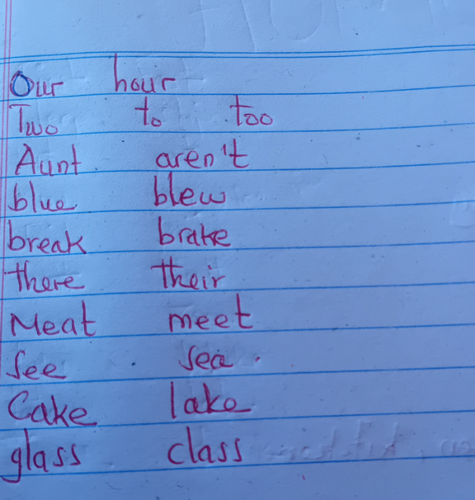 Our hour
Two to too
Aunt aren't
blue blew
break brake
there their
Meat meet
See sea.
Cake lake
glass class